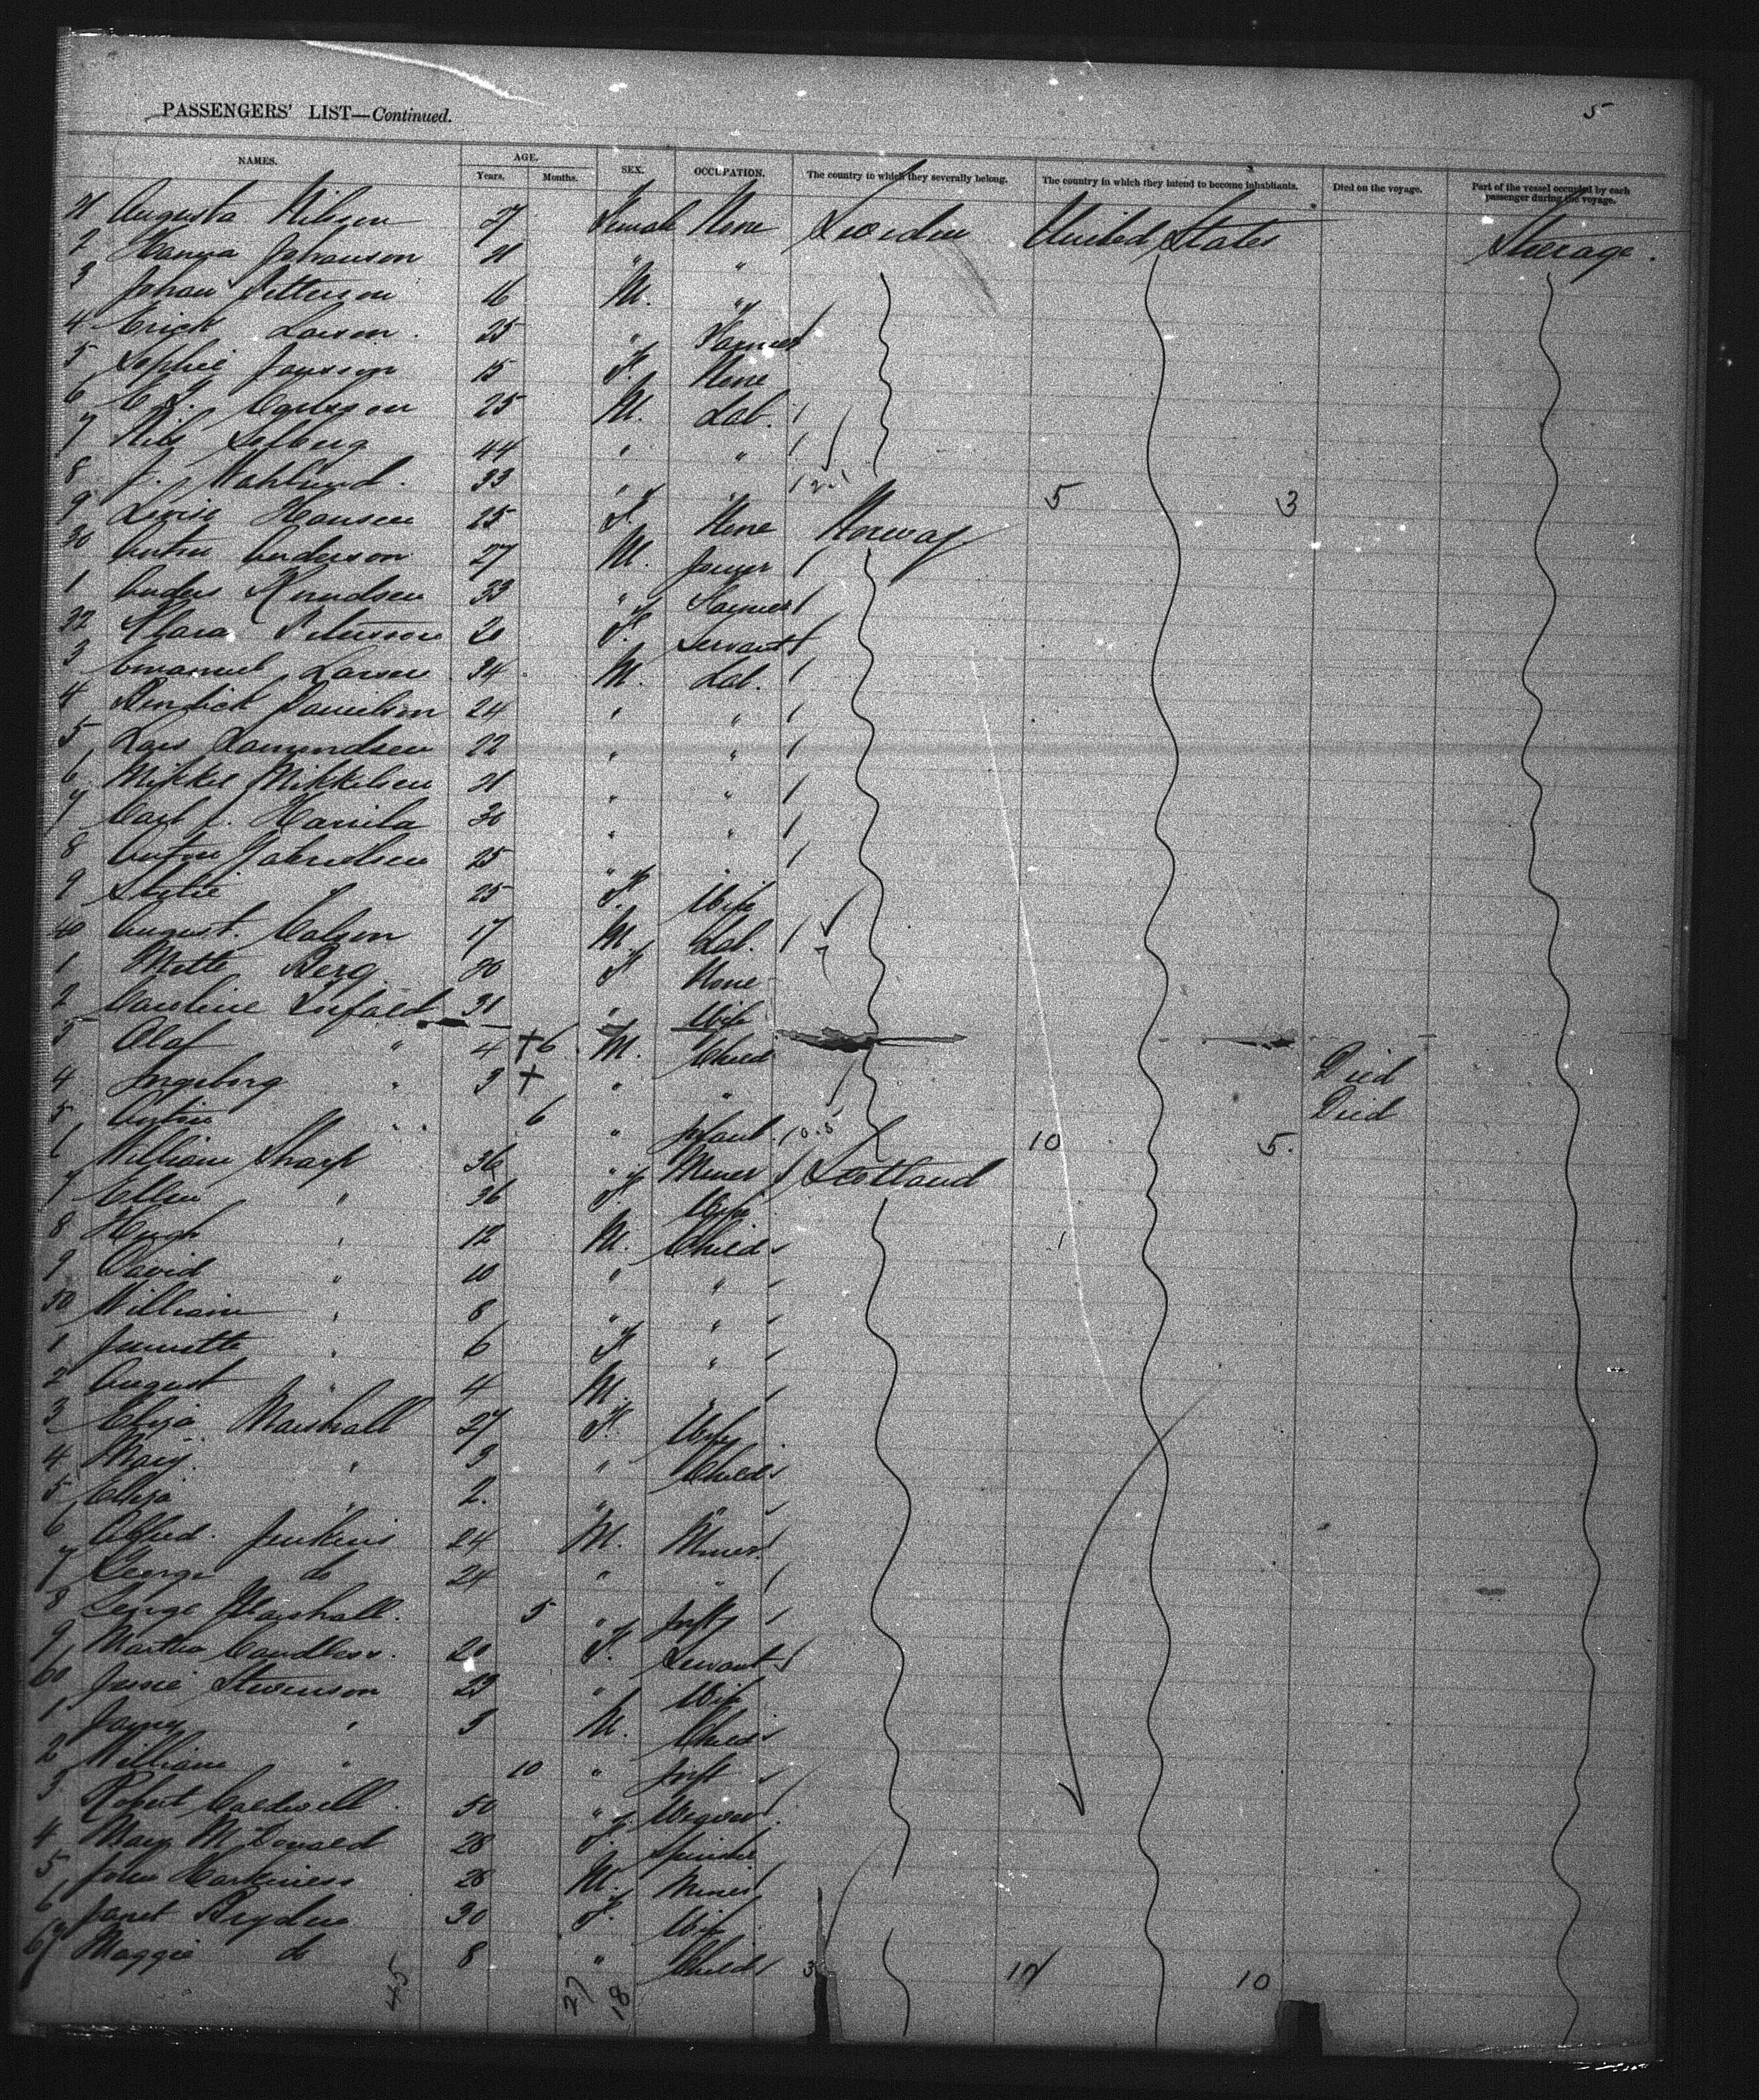 5
PASSENGERS' LIST—Continued.
NAMES. AGE. SEX. OCCUPATION. The country to which they severally belong. The country in which they intend to become inhabitants. Died on the voyage. Part of the vessel occupied by each passenger during the voyage.
Years. Months.
21 Augusta Nilsson 27 Female None Sweden United States Steerage.
2 Hanna Johanson 21 " "
3 Johan Petterson 16 M. "
4 Erick Larson. 25 " Farmer
5 Sophie Jonsson 15 F. None
6 Carlsson 25 M. Lab.
7 Nils Solberg 44 " "
8 J. Wahlund. 33 " " 5 3
9 Louise Hansen 25 F. None Norway
30 Anton Anderson 27 M. Joiner
1 Anders Knudsen 33 " Farmer
32 Klara Peterson 20 F. Servant
3 Emanuel Larsen 34 M. Lab.
4 Danielson 24 " "
5 Lars Amundsen 22 " "
6 Mikkel Mikkelsen 21 " "
7 Carl J. 30 " "
8 Anton Gabrielsen 25 " "
9 25 F. Wife
40 August. Calson 17 M. Lab.
1 Mette Berg 80 F None
2 Caroline 31 " Wife
3 Olaf " 4 6 M. Child Died
4 Ingeborg " 3 " " Died
5 " 6 " Infant 10 5.
6 William Sharp 36 " Miner Scotland
7 Ellen " 36 F. Wife
8 Hugh " 12 M. Child
9 David " 10 " "
50 William " 8 " "
1 Jennette " 6 F "
2 August " 4 M. "
3 Eliza Marshall 27 F. Wife
4 Mary " 3 " Child
5 Eliza " 2. " "
6 Alfred. Jenkins 24 M. Miner
7 George do 24 " "
8 George Marshall. 5 " Inft
9 Martha Candless. 20 F. Servant
60 Jessie Stevenson 23 " Wife
1 James " 3 M. Child
2 William " 10 " Inft
3 Robert Caldwell. 50 " Weaver
4 Mary McDonald 28 F. Spinster
5 John Harkiness 28 M. Miner
6 Janet Bryden 30 F. Wife
67 Maggie do 8 " Child 10
45 27 18